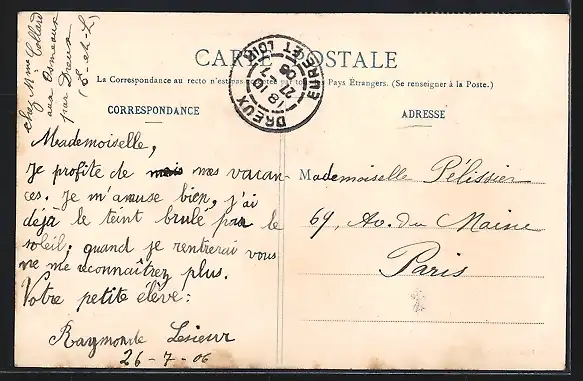 chez Mme Collard
aux Osmeaux
par Dreux
(E. et. L)
CARTE POSTALE
La Correspondance au recto n'est pas acceptée par tous les Pays Étrangers. (Se renseigner à la Poste.)
DREUX
EURE ET LOIR
CORRESPONDANCE
Mademoiselle,
Je profite de mais mes vacan-
ces. Je m'amuse bien, j'ai
déjà le teint brulé par le
soleil, quand je rentrerai vous
ne me reconnaîtrez plus.
Votre petite élève:
Raymonde Lesieur
26-7-06
ADRESSE
Mademoiselle Pélissier
69, Av. du Maine
Paris